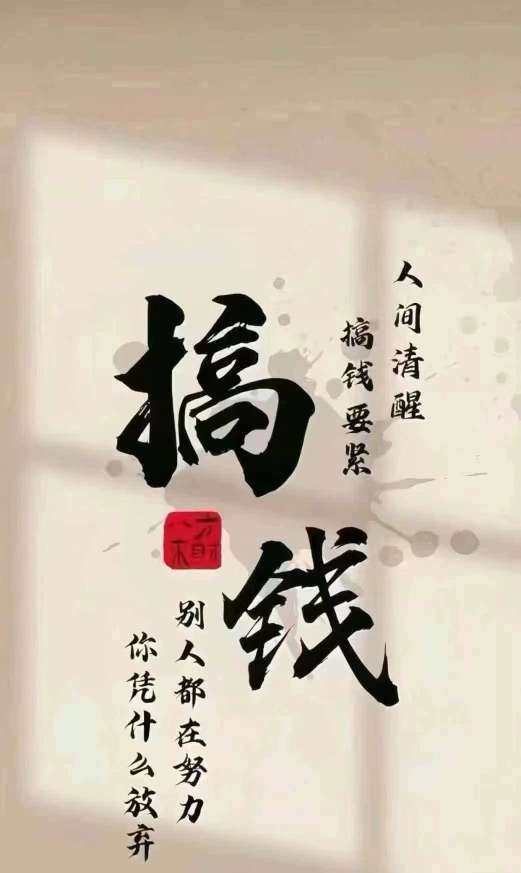 搞钱
人间清醒
搞钱要紧
别人都在努力
你凭什么放弃